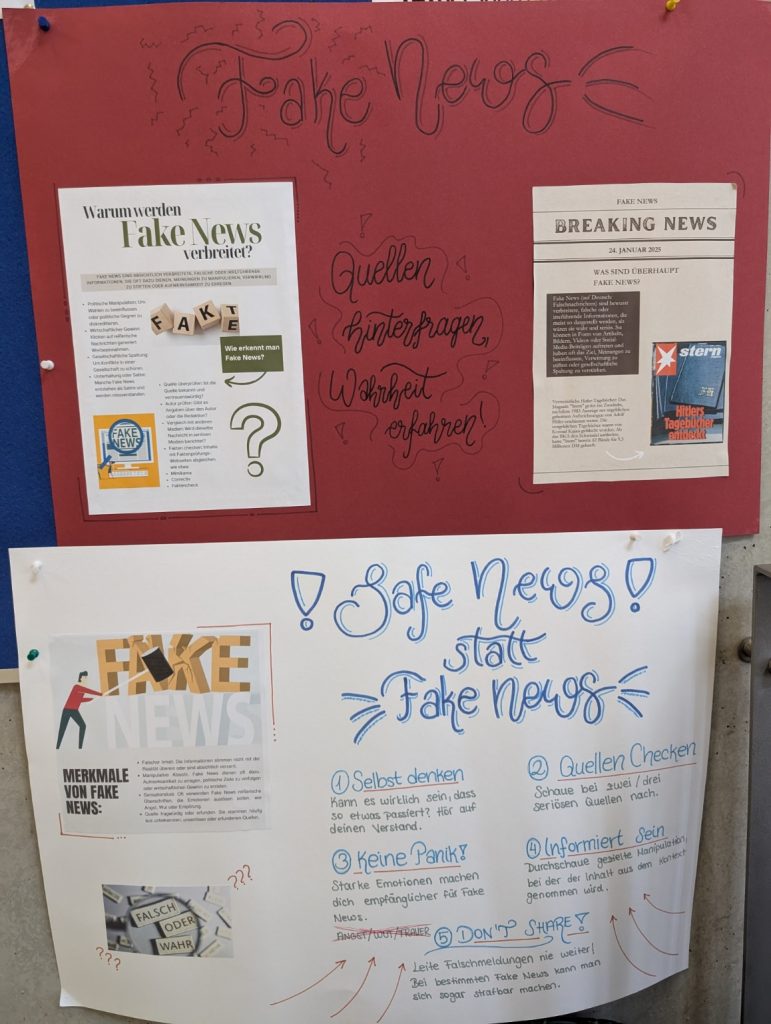 Fake News
Warum werden
Fake News
verbreitet?
FAKE NEWS SIND ABSICHTLICH VERBREITETE, FALSCHE ODER IRREFÜHRENDE
INFORMATIONEN, DIE OFT DAZU DIENEN, MEINUNGEN ZU MANIPULIEREN, VERWIRRUNG
ZU STIFTEN ODER AUFMERKSAMKEIT ZU ERREGEN.
Politische Manipulation: Um
Wahlen zu beeinflussen
oder politische Gegner zu
diskreditieren.
Wirtschaftlicher Gewinn:
Klicken auf reißerische
Nachrichten generiert
Werbeeinnahmen.
Gesellschaftliche Spaltung:
Um Konflikte in einer
Gesellschaft zu schüren.
Unterhaltung oder Satire:
Manche Fake News
entstehen als Satire und
werden missverstanden.
FAKT
E
Wie erkennt man
Fake News?
Quelle überprüfen: Ist die
Quelle bekannt und
vertrauenswürdig?
Autor prüfen: Gibt es
Angaben über den Autor
oder die Redaktion?
Vergleich mit anderen
Medien: Wird dieselbe
Nachricht in seriösen
Medien berichtet?
Fakten checken: Inhalte
mit Faktenprüfungs-
Webseiten abgleichen
wie etwa:
Mimikama
Correctiv
Faktencheck
FAKE
NEWS
?
Quellen
hinterfragen,
Wahrheit
erfahren!
FAKE NEWS
BREAKING NEWS
24. JANUAR 2025
WAS SIND ÜBERHAUPT
FAKE NEWS?
Fake News (auf Deutsch:
Falschnachrichten) sind bewusst
verbreitete, falsche oder
irreführende Informationen, die
meist so dargestellt werden, als
wären sie wahr und seriös. Sie
können in Form von Artikeln,
Bildern, Videos oder Social-
Media-Beiträgen auftreten und
haben oft das Ziel, Meinungen zu
beeinflussen, Verwirrung zu
stiften oder gesellschaftliche
Spaltung zu verstärken.
stern
Hitlers
Tagebücher
entdeckt
! Safe News !
statt
Fake News
FAKE
NEWS
MERKMALE
VON FAKE
NEWS:
Falscher Inhalt: Die Informationen stimmen nicht mit der
Realität überein oder sind absichtlich verzerrt.
Manipulative Absicht: Fake News dienen oft dem,
Aufmerksamkeit zu erregen, politische Ziele zu verfolgen
oder wirtschaftlichen Gewinn zu erzielen.
Sensationslust: Oft verwenden Fake News reißerische
Überschriften, die Emotionen auslösen sollen, wie
Angst, Wut oder Empörung.
Quelle fragwürdig oder erfunden: Sie stammen häufig
aus unbekannten, unseriösen oder erfundenen Quellen.
① Selbst denken
Kann es wirklich sein, dass
so etwas passiert? Hör auf
deinen Verstand.
② Quellen Checken
Schaue bei zwei / drei
seriösen Quellen nach.
③ Keine Panik!
Starke Emotionen machen
dich empfänglicher für Fake
News.
ANGST/WUT/TRAUER
④ Informiert Sein
Durchschaue gezielte Manipulation,
bei der der Inhalt aus dem Kontext
genommen wird.
⑤ DON'T SHARE!
Leite Falschmeldungen nie weiter!
Bei bestimmten Fake News kann man
sich sogar strafbar machen.
???
FALSCH
ODER
WAHR
???